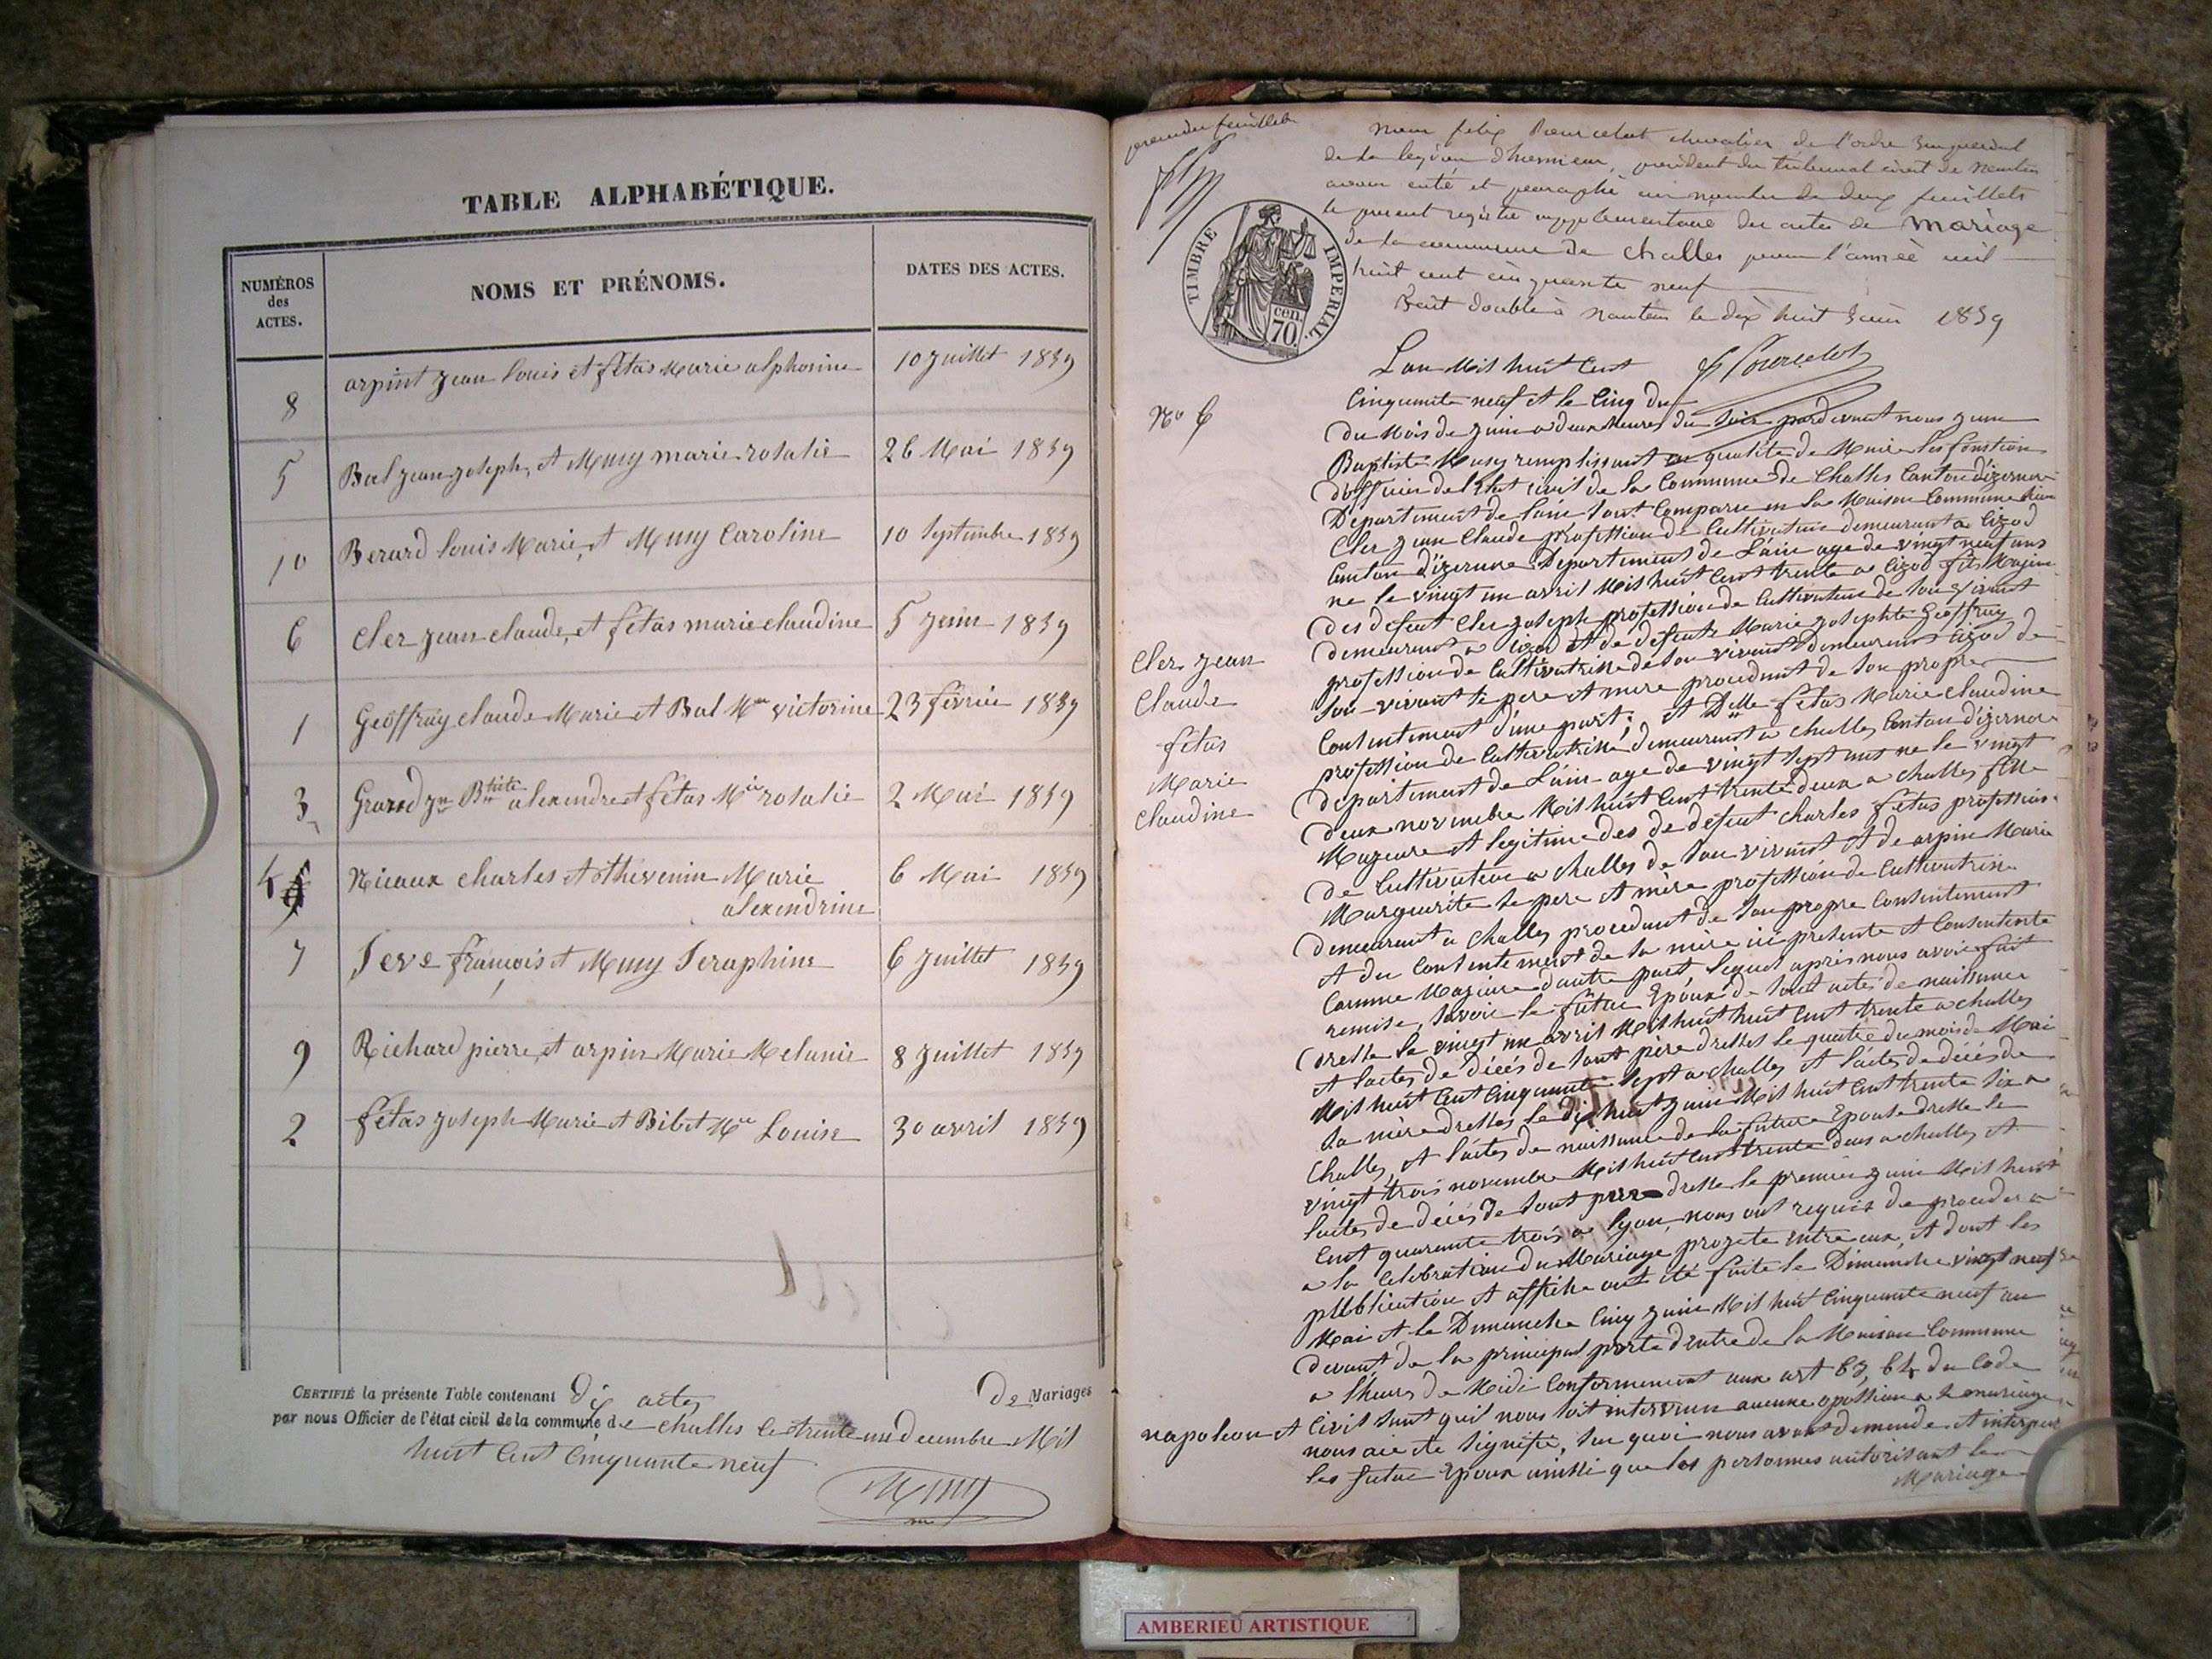 TABLE ALPHABÉTIQUE.
NUMÉROS des ACTES.
NOMS ET PRÉNOMS.
DATES DES ACTES.
8 arpint jean louis et fétas Marie alphosine 10 juillet 1859
5 Bal jean joseph, et Musy marie rosalie 26 Mai 1859
10 Berard louis Marie, et Musy Caroline 10 Septembre 1859
6 Cler jean claude, et fétas marie claudine 5 juin 1859
1 Geoffray claude Marie et Bal Mie victorine 23 février 1859
3 Grard jn Btiste alexendre et fétas Mie rosalie 2 Mai 1859
4 Nicaux charles et thévenin Marie
alexendrine 6 Mai 1859
7 Seve françois et Musy Seraphine 6 juillet 1859
9 Richard pierre, et arpin Marie Melanie 8 juillet 1859
2 fétas joseph Marie et Bilet Mie Louise 30 avril 1859
CERTIFIÉ la présente Table contenant dix actes De Mariages
par nous Officier de l'état civil de la commune de challes le trente un decembre Mil
huit Cent Cinquante neuf
Musy
premier feuillet
Nous felix Courcelot chevalier de l'ordre imperial
de la legion d'honneur, president du tribunal civil de Nantua
avons coté et paraphé au nombre de deux feuillets
le present registre supplementaire des actes de mariage
de la commune de challes pour l'année mil
huit cent cinquante neuf
Fait double à Nantua le dix huit juin 1859
TIMBRE IMPERIAL.
cen.
70.
F Courcelot
No 6
Cler jean
Claude
fétas
Marie
Claudine
L'an Mil huit Cent
Cinquante neuf et le Cinq du
du Mois de juin a deux heures du Soir pardevant nous jean
Baptiste Musy remplissant en qualité de Maire les fonction
d'officier de l'Etat civil de la Commune de Challes Canton d'izernore
Departiment de l'ain sont Comparu en la Maison Commune
Cler jean Claude profession de Cultivateur demeurant a Cizod
Canton d'izernore Département de L'ain age de vingt neuf ans
ne le vingt un avril Mil huit Cent trente a Cizod fils Majeur
des defunt Cler joseph profession de Cultivateur de son vivant
demeurant a Cizod et de defunte Marie josephte Geoffray
profession de Cultivatrisse de son vivant demeurant Cizod de
son vivant le pere et mere procedant de son propre
Contentement d'une part; et Delle fétas Marie Claudine
profession de Cultivatrisse demeurant a challes Canton d'izernore
département de L'ain age de vingt sept ans ne le vingt
deux novembre Mil huit Cent trente deux a challes fille
Majeure et legitime des de defunt charles fétas profession
de Cultivateur a challes de son vivant et de arpin Marie
Marguerite le pere et mère profession de Cultivatrise
demeurant a challes procedant de son propre Consentement
et du Contentement de sa mère ici presente et Consentente
Comme Majeure d'autre part, lequel apres nous avoir fait
remise, Savoir le futur Epoux de sont actes de naissance
dresse le vingt un avril Mil huit huit Cent trente a challes
et l'actes de décés de sont père dresses le quatre du mois de Mai
Mil huit Cent Cinquante Sept a challes et l'actes de décés de
sa mère dresses le dix huit juin Mil huit Cent trente Six a
Challes, et l'actes de naissance de la future Epouse dresse le
vingt trois novembre Mil huit Cent trente deux a challes et
l'actes de décés de sont pere dresse le premier juin Mil huit
Cent quarante trois a lyon, nous ont requis de proceder a
a la Celebration du Mariage projete entre eux, et dont les
publication et affiche ont été faite le Dimanche vingt neuf
Mai et le Dimanche Cinq juin Mil huit Cinquante neuf au
devant de la principal porte d'entre de la Maison Commune
a l'heure de Midi Conformement aux art 63, 64 du Code
napoleon et Civil sant qu'il nous soit intervenu aucune opossion a le mariage
nous aie été signifie, sur quoi nous avons demende et interpele
les futur Epoux ainssi que les personnes autorisant le
Mariage
AMBERIEU ARTISTIQUE